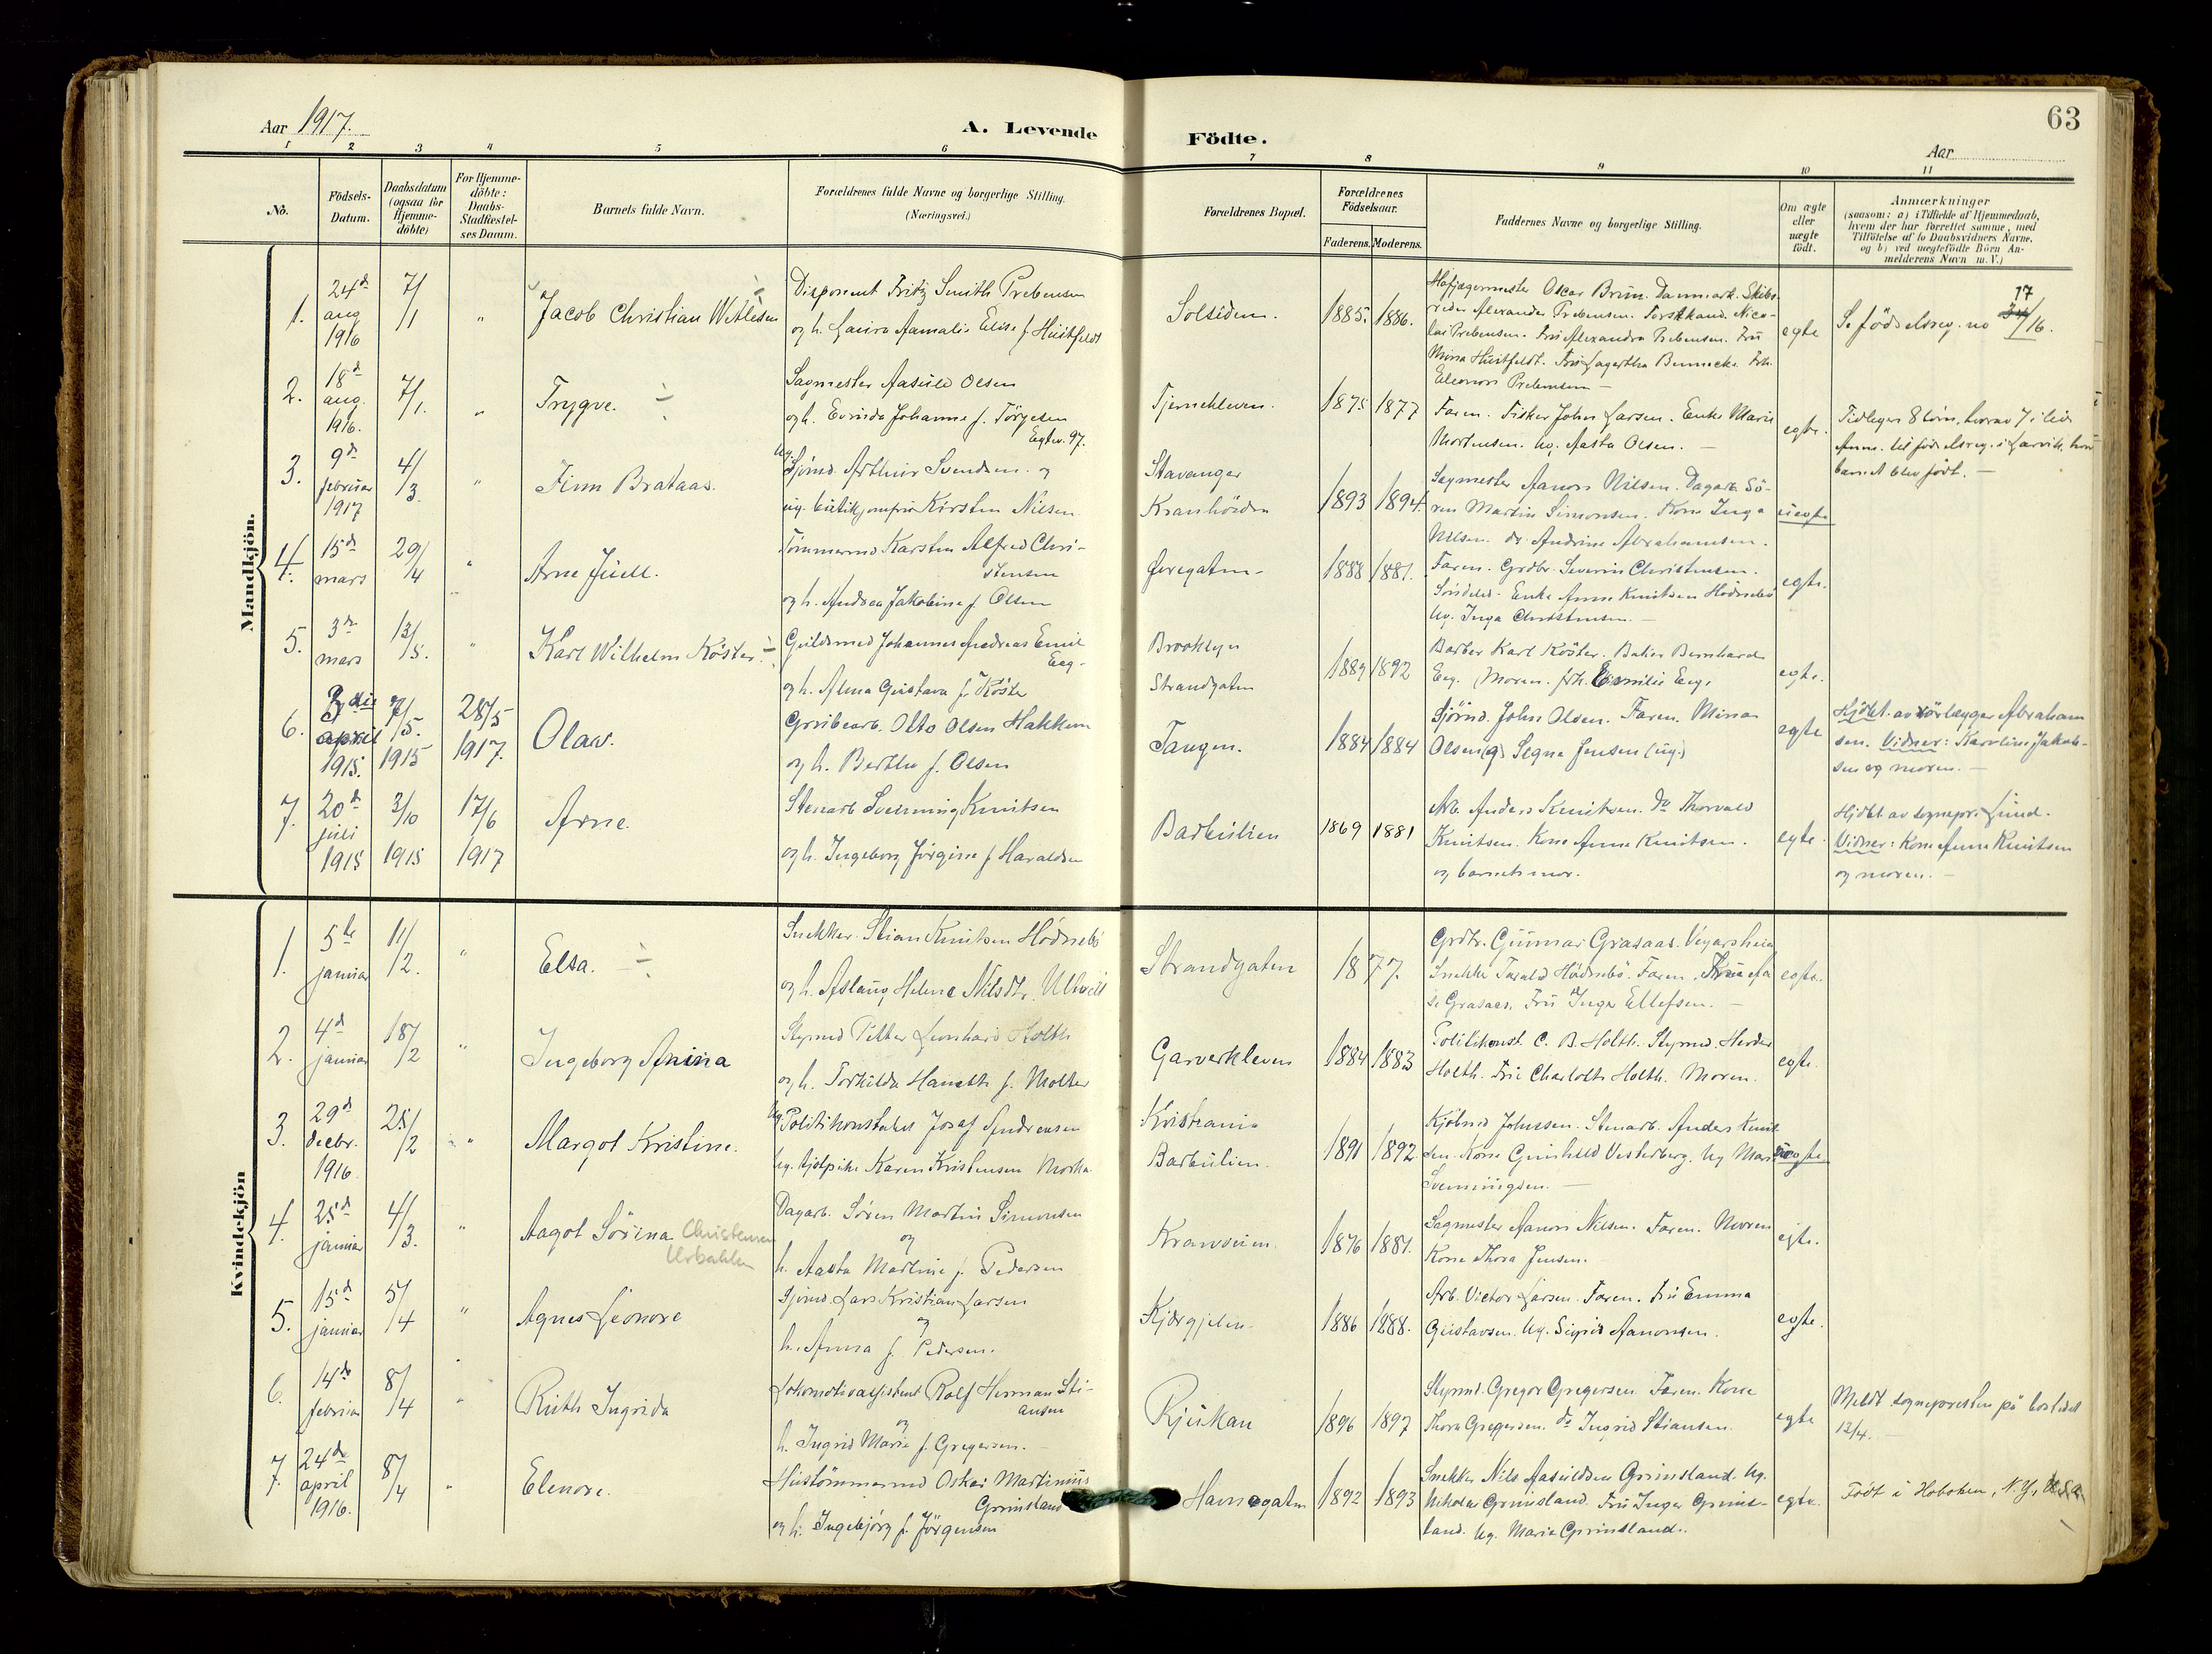 Aar 1917.
A. Levende Födte.
63
Aar
1 2 3 4 5 6 7 8 9 10 11
No.
Födsels-
Datum.
Daabsdatum
(ogsaa for
Hjemme-
döbte)
For Hjemme-
döbte:
Daabs-
Stadfæstel-
ses Datum.
Barnets fulde Navn.
Forældrenes fulde Navne og borgerlige Stilling.
(Næringsvei.)
Forældrenes Bopæl.
Forældrenes
Födselsaar.
Faderens. Moderens.
Faddernes Navne og borgerlige Stilling.
Om ægte
eller
uægte
födt.
Anmærkninger
(saasom: a) i Tilfælde af Hjemmedaab,
hvem der har forrettet samme, med
Tilföielse af to Daabsvidners Navne,
og b) ved uægtefödte Börn An-
melderens Navn m. V.)
Mandkjön.
1.
24d
aug
1916
7/1
"
Jacob Christian
Disponent Fritz Smith Prebensen
og h. Laura Aamalie Elise f. Huitfeldt
Solsiden.
1885. 1886.
Hofjægermester Oscar Brun. Danmark. Skibs-
reder Alexander Prebensen. Forstkand. Nico-
lai Prebensen. Fru Alexandra Prebensen. Fru
Mina Huitfeldt. Fru Lagertha Bennecke. Frk.
Eleonore Prebensen —
egte
Se födselsreg. no 17/16.
2.
18d
aug.
1916.
7/1.
"
Trygve.
Sagmester Aasuld Olsen
og h. Evinda Johanne f. Törgesen
Egtev. 97.
Tjernekleven.
1875 1877
Faren. Fisker John Larsen. Enke Marie
Mortensen. Ug. Aasta Olsen. —
egte.
Tidligere 8 börn, hvorav 7 i live
Anm. til födselsreg. i Larvik, hvor
barnet blev födt. —
3.
9d
februar
1917
4/3.
"
Finn Brataas.
Ug. Sjömd. Arthur Svendsen. og
ug. butikjomfru Kirsten Nilsen
Stavanger
1893 1894.
Sagmester Aanon Nilsen. Dagarb. Sö-
ren Martin Simonsen. Kone Inga
Nilsen. do. Andrine Abrahamsen.
uegte
4.
15d
mars
29/4
"
Arne Juell.
Tömmermd Karsten Alfred Chri-
stensen
og h. Andrea Jakobine f. Olsen
Øvregaten
1888 1881.
Faren. Grdbr. Severin Christensen.
Söndeled. Enke Anne Knutsen Hödnebö
Ug. Inga Christensen. —
egte.
5.
3de
mars
13/5.
"
Karl Wilhelm Köster.
Guldsmed Johannes Andreas Emil
Eeg.
og h. Alma Gustava f. Köster
Brooklyn
Strandgaten
1889 1892
Barber Karl Köster. Baker Bernhard
Eeg. Moren. frk. Emilie Eeg.
egte.
6.
april
1915.
7/5.
1915
28/5
1917.
Olav.
Grubearb. Otto Olsen
og h. Berthe f. Olsen
Tangen.
1884 1884
Sjömd. John Olsen. Faren. Minna
Olsen (g) Segna Jensen (ug.)
egte
Hjdbt. av rörlægger Abraham
sen. Vidner: Karoline Jakob-
sen og moren. —
7.
20d
juli
1915
3/10
1915
17/6
1917
Arne
Stenarb Svenning Knutsen
og h. Ingeborg Jörgine f. Haraldsen
Barbulien
1869 1881
Arb. Anders Knutsen. Do Thorvald
Knutsen. Kone Anne Knutsen.
og barnets mor.
egte.
Hjdbt av sognepr. Lund.
Vidner: Kone Anne Knutsen
og moren. —
Kvindekjön
1.
5te
januar
11/2.
"
Elsa.
Snekker. Stian Knutsen Hödnebö
og h. Aslaug Helene Nilsdtr.
Strandgaten
1877.
Grdbr. Gunnar Grasaas. Vegarsheia
Snekker Tarald Hödnebö. Faren. Fru Aa
se Grasaas. Fru Inga Ellefsen. —
egte.
2.
4d
januar
18/2
"
Ingeborg Anina
Styrmd Petter Leonhard Holth
og h. Torhilda Hanette f. Molter
Garverkleven
1884 1883
Politikonst. C. B. Holth. Styrmd. Herder
Holth. Fru Charlotte Holth. Moren.
egte.
3.
29d
decbr.
1916.
25/2
"
Margot Kristine.
Ug. Politikonstabel Josef Andreasen
Ug. Karen Kristensen Morka
Kristiania
Barbulien.
1891 1892
Kjöbmd Johnssen. Stenarb. Anders Knut
sen. Kone Gunhild Vesterberg. Ug Marie
Svenningsen. —
uegte
4.
25d
januar
4/3.
"
Aagot Sörina Christensen
Urbakken
Dagarb. Sören Martin Simonsen
og
h. Aasta Martine f. Pedersen
1876 1881.
Sagmester Aanon Nilsen. Faren. Moren
Kone Thora Jensen.
egte.
5.
15d
januar
5/4
"
Agnes Leonore
Sjömd. Lars Kristian Larsen
og
h. Anna f. Pedersen.
1886 1888.
Arb. Victor Larsen. Faren. Fru Emma
Gustavsen. Ug. Sigrid Aanonsen.
egte.
6.
14de
februar
8/4
"
Ruth Ingrida
Lokomotivassistent Rolf Herman Sti-
ansen
og
h. Ingrid Marie f. Gregersen.
Rjukan
1896 1897
Styrmd. Gregor Gregersen. Faren. Kone
Thora Gregersen. do Ingrid Stiansen.
egte
Meldt sognepresten på bostedet
12/4. —
7.
24de
april
1916.
8/4
"
Elenore.
Hustömmermd Oskar Martinius
Grimsland
og h. Ingebjörg f. Jörgensen
Havnegaten
1892 1893
Snekker Nils Aasuldsen Grimsland. Ug.
Nikolai Grimsland. Fru Inga Grims-
land. Ug. Marie Grimsland.
egte.
Födt i Hoboken, N.Y.,